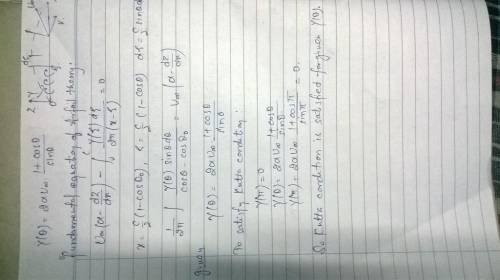 γ(θ) = 2αV∞ (1+cosθ)/sinθ
Fundamental equation of airfoil theory:
V∞(α - dz/dx) - ∫ γ(ξ)dξ / 2π(x-ξ) = 0
x = c/2 (1-cosθ₀), ξ = c/2 (1-cosθ) dξ = c/2 sinθdθ
1/2π ∫ γ(θ) sinθdθ / cosθ - cosθ₀ = V∞ (α - dz/dx)
given γ(θ) = 2αV∞ (1+cosθ)/sinθ
To satisfy Kutta condition:
γ(π) = 0
γ(θ) = 2αV∞ (1+cosθ)/sinθ
γ(π) = 2αV∞ (1+cosπ)/sinπ = 0.
So Kutta condition is satisfied for given γ(θ).